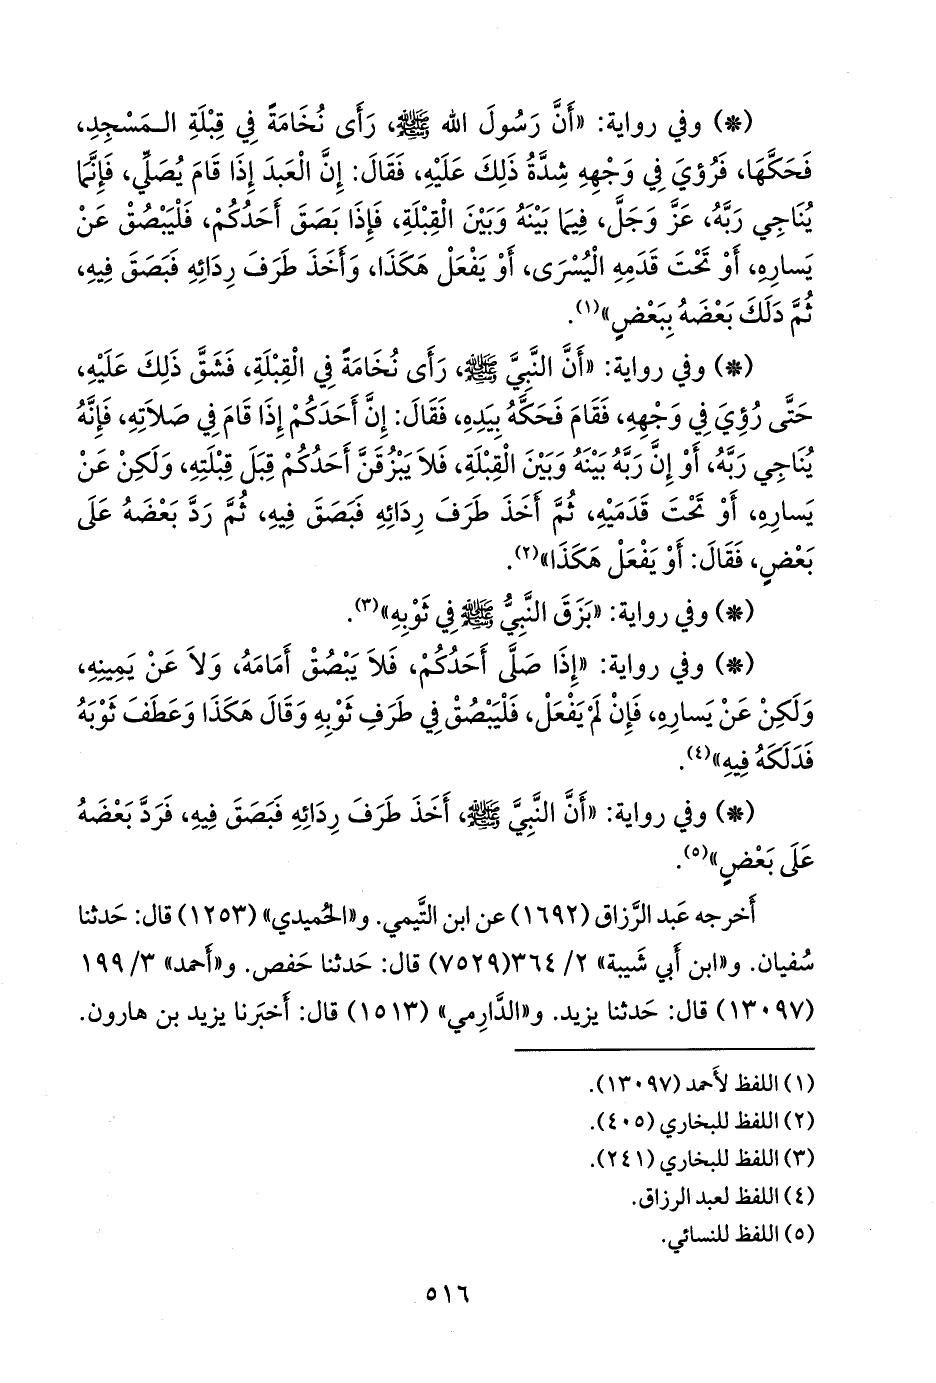 (*) وفي رواية: «أَنَّ رَسُولَ الله ﷺ، رَأَى نُخَامَةً فِي قِبْلَةِ الـمَسْجِدِ،
فَحَكَّهَا، فَرُؤيَ فِي وَجْهِهِ شِدَّةُ ذَلِكَ عَلَيْهِ، فَقَالَ: إِنَّ الْعَبدَ إِذَا قَامَ يُصَلِّي، فَإِنَّمَا
يُنَاجِي رَبَّهُ، عَزَّ وَجَلَّ، فِيمَا بَيْنَهُ وَبَيْنَ الْقِبْلَةِ، فَإِذَا بَصَقَ أَحَدُكُمْ، فَلْيَبْصُقْ عَنْ
يَسارِهِ، أَوْ تَحْتَ قَدَمِهِ الْيُسْرَى، أَوْ يَفْعَلْ هَكَذَا، وَأَخَذَ طَرَفَ رِدَائِهِ فَبَصَقَ فِيهِ،
ثُمَّ دَلَكَ بَعْضَهُ بِبَعْضٍ»(١).
(*) وفي رواية: «أَنَّ النَّبِيَّ ﷺ، رَأَى نُخَامَةً فِي الْقِبْلَةِ، فَشَقَّ ذَلِكَ عَلَيْهِ،
حَتَّى رُؤِيَ فِي وَجْهِهِ، فَقَامَ فَحَكَّهُ بِيَدِهِ، فَقَالَ: إِنَّ أَحَدَكُمْ إِذَا قَامَ فِي صَلاَتِهِ، فَإِنَّهُ
يُنَاجِي رَبَّهُ، أَوْ إِنَّ رَبَّهُ بَيْنَهُ وَبَيْنَ الْقِبْلَةِ، فَلاَ يَبْزُقَنَّ أَحَدُكُمْ قِبَلَ قِبْلَتِهِ، وَلَكِنْ عَنْ
يَسارِهِ، أَوْ تَحْتَ قَدَمَيْهِ، ثُمَّ أَخَذَ طَرَفَ رِدَائِهِ فَبَصَقَ فِيهِ، ثُمَّ رَدَّ بَعْضَهُ عَلَى
بَعْضٍ، فَقَالَ: أَوْ يَفْعَلْ هَكَذَا»(٢).
(*) وفي رواية: «بَزَقَ النَّبِيُّ ﷺ فِي ثَوْبِهِ»(٣).
(*) وفي رواية: «إِذَا صَلَّى أَحَدُكُمْ، فَلاَ يَبْصُقْ أَمَامَهُ، وَلاَ عَنْ يَمِينِهِ،
وَلَكِنْ عَنْ يَسارِهِ، فَإِنْ لَمْ يَفْعَلْ، فَلْيَبْصُقْ فِي طَرَفِ ثَوْبِهِ وَقَالَ هَكَذَا وَعَطَفَ ثَوْبَهُ
فَدَلَكَهُ فِيهِ»(٤).
(*) وفي رواية: «أَنَّ النَّبِيَّ ﷺ، أَخَذَ طَرَفَ رِدَائِهِ فَبَصَقَ فِيهِ، فَرَدَّ بَعْضَهُ
عَلَى بَعْضٍ»(٥).
أَخرجه عَبد الرَّزاق (١٦٩٢) عن ابن التَّيمي. و«الحُميدي» (١٢٥٣) قال: حَدثنا
سُفيان. و«ابن أبي شَيبة» ٢/ ٣٦٤(٧٥٢٩) قال: حَدثنا حَفص. و«أَحمد» ٣/ ١٩٩
(١٣٠٩٧) قال: حَدثنا يزيد. و«الدَّارِمي» (١٥١٣) قال: أَخبَرنا يزيد بن هارون.
(١) اللفظ لأَحمد (١٣٠٩٧).
(٢) اللفظ للبخاري (٤٠٥).
(٣) اللفظ للبخاري (٢٤١).
(٤) اللفظ لعبد الرزاق.
(٥) اللفظ للنسائي.
٥١٦